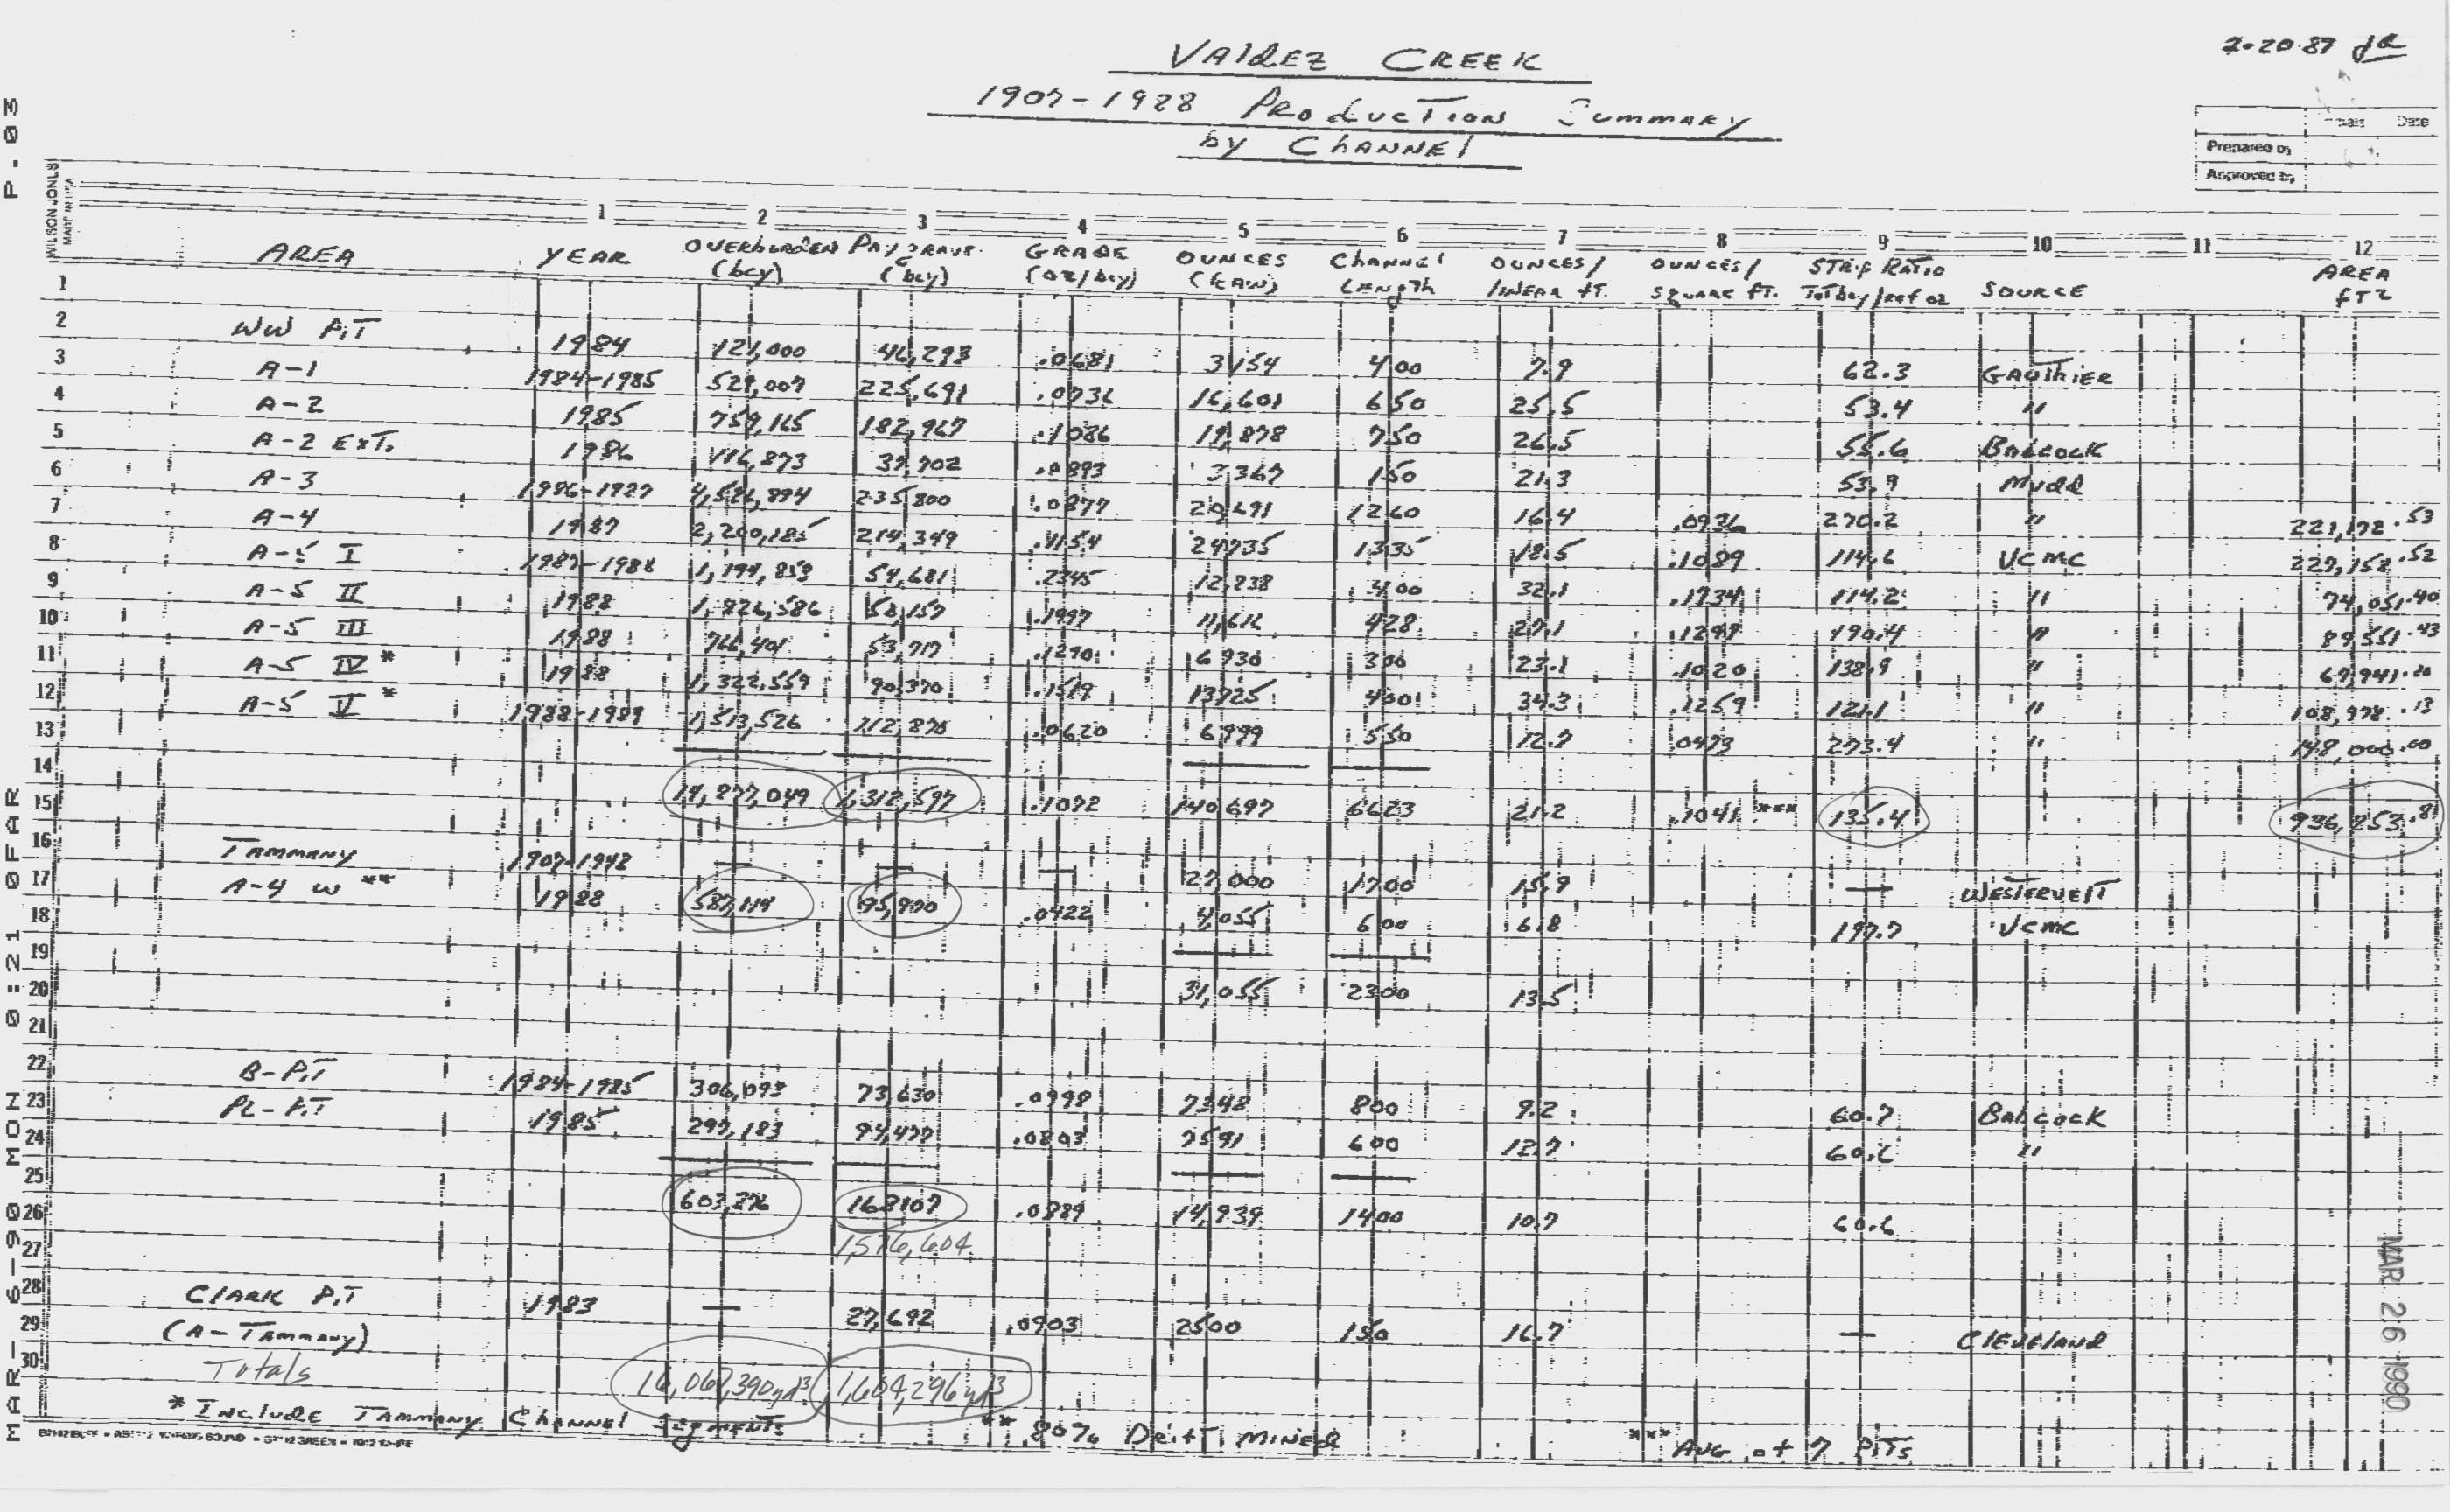 P.03
2-20-89
VALDEZ CREEK
1907-1928 PRODUCTION SUMMARY
by CHANNEL
Date
Prepared by
Approved by
WILSON JONES
MADE IN U.S.A.
1 2 3 4 5 6 7 8 9 10 11 12
AREA YEAR OVERBURDEN (bcy) PAY GRAVEL (bcy) GRADE (oz/bcy) OUNCES (RAW) CHANNEL LENGTH OUNCES/ LINEAR FT. OUNCES/ SQUARE FT. STRIP RATIO Tot bcy/ref oz SOURCE AREA FT2
1
2 WW PIT 1984 121,000 46,293 .0681 3154 400 7.9 62.3 GAUTHIER
3 A-1 1984-1985 529,007 225,691 .0736 16,601 650 25.5 53.4 "
4 A-2 1985 759,165 182,967 .1086 19,878 750 26.5 55.6 BABCOCK
5 A-2 EXT. 1986 116,873 37,702 .0893 3367 150 21.3 53.9 MUDD
6 A-3 1986-1987 4,526,894 235,800 .0877 20,691 1260 16.4 .0936 270.2 " 221,172.53
7 A-4 1987 2,200,185 214,349 .1154 24735 1335 18.5 .1089 114.6 VCMC 227,158.52
8 A-5 I 1987-1988 1,194,853 54,681 .2345 12,838 400 32.1 .1734 114.2 " 74,051.40
9 A-5 II 1988 1,826,586 58,157 .1997 11,616 428 27.1 .1297 190.4 " 89,551.43
10 A-5 III 1988 766,401 53,717 .1290 6930 300 23.1 .1020 138.9 " 67,941.20
11 A-5 IV * 1988 1,322,559 90,370 .1519 13725 400 34.3 .1259 121.1 " 108,978.13
12 A-5 V * 1988-1989 1,513,526 112,870 .0620 6999 550 12.7 .0473 273.4 " 148,000.00
13
14
15 14,877,049 1,312,597 .1072 140,697 6623 21.2 .1041 *** 135.4 936,853.81
16 TAMMANY 1907-1942 — — — 27,000 1700 15.9 — WESTERVELT
17 A-4 W ** 1988 587,114 95,900 .0422 4,055 600 6.8 197.7 VCMC
18
19
20 31,055 2300 13.5
21
22 B-PIT 1984-1985 306,093 73,630 .0998 7348 800 9.2 60.7 BABCOCK
23 PL-PIT 1985 297,183 94,477 .0803 7591 600 12.7 60.6 "
24
25
26 603,276 168107 .0889 14,939 1400 10.7 60.6
27 1,576,604
28 CLARK PIT 1983 — 27,692 .0903 2500 150 16.7 — CLEVELAND
29 (A-TAMMANY)
30 Totals 16,067,390 yd3 1,604,296 yd3
* INCLUDE TAMMANY CHANNEL SEGMENTS ** 80% DRIFT MINED *** AVG. of 7 PITS
MAR- 6-90 MON 0:21 OFAR
MAR 26 1990